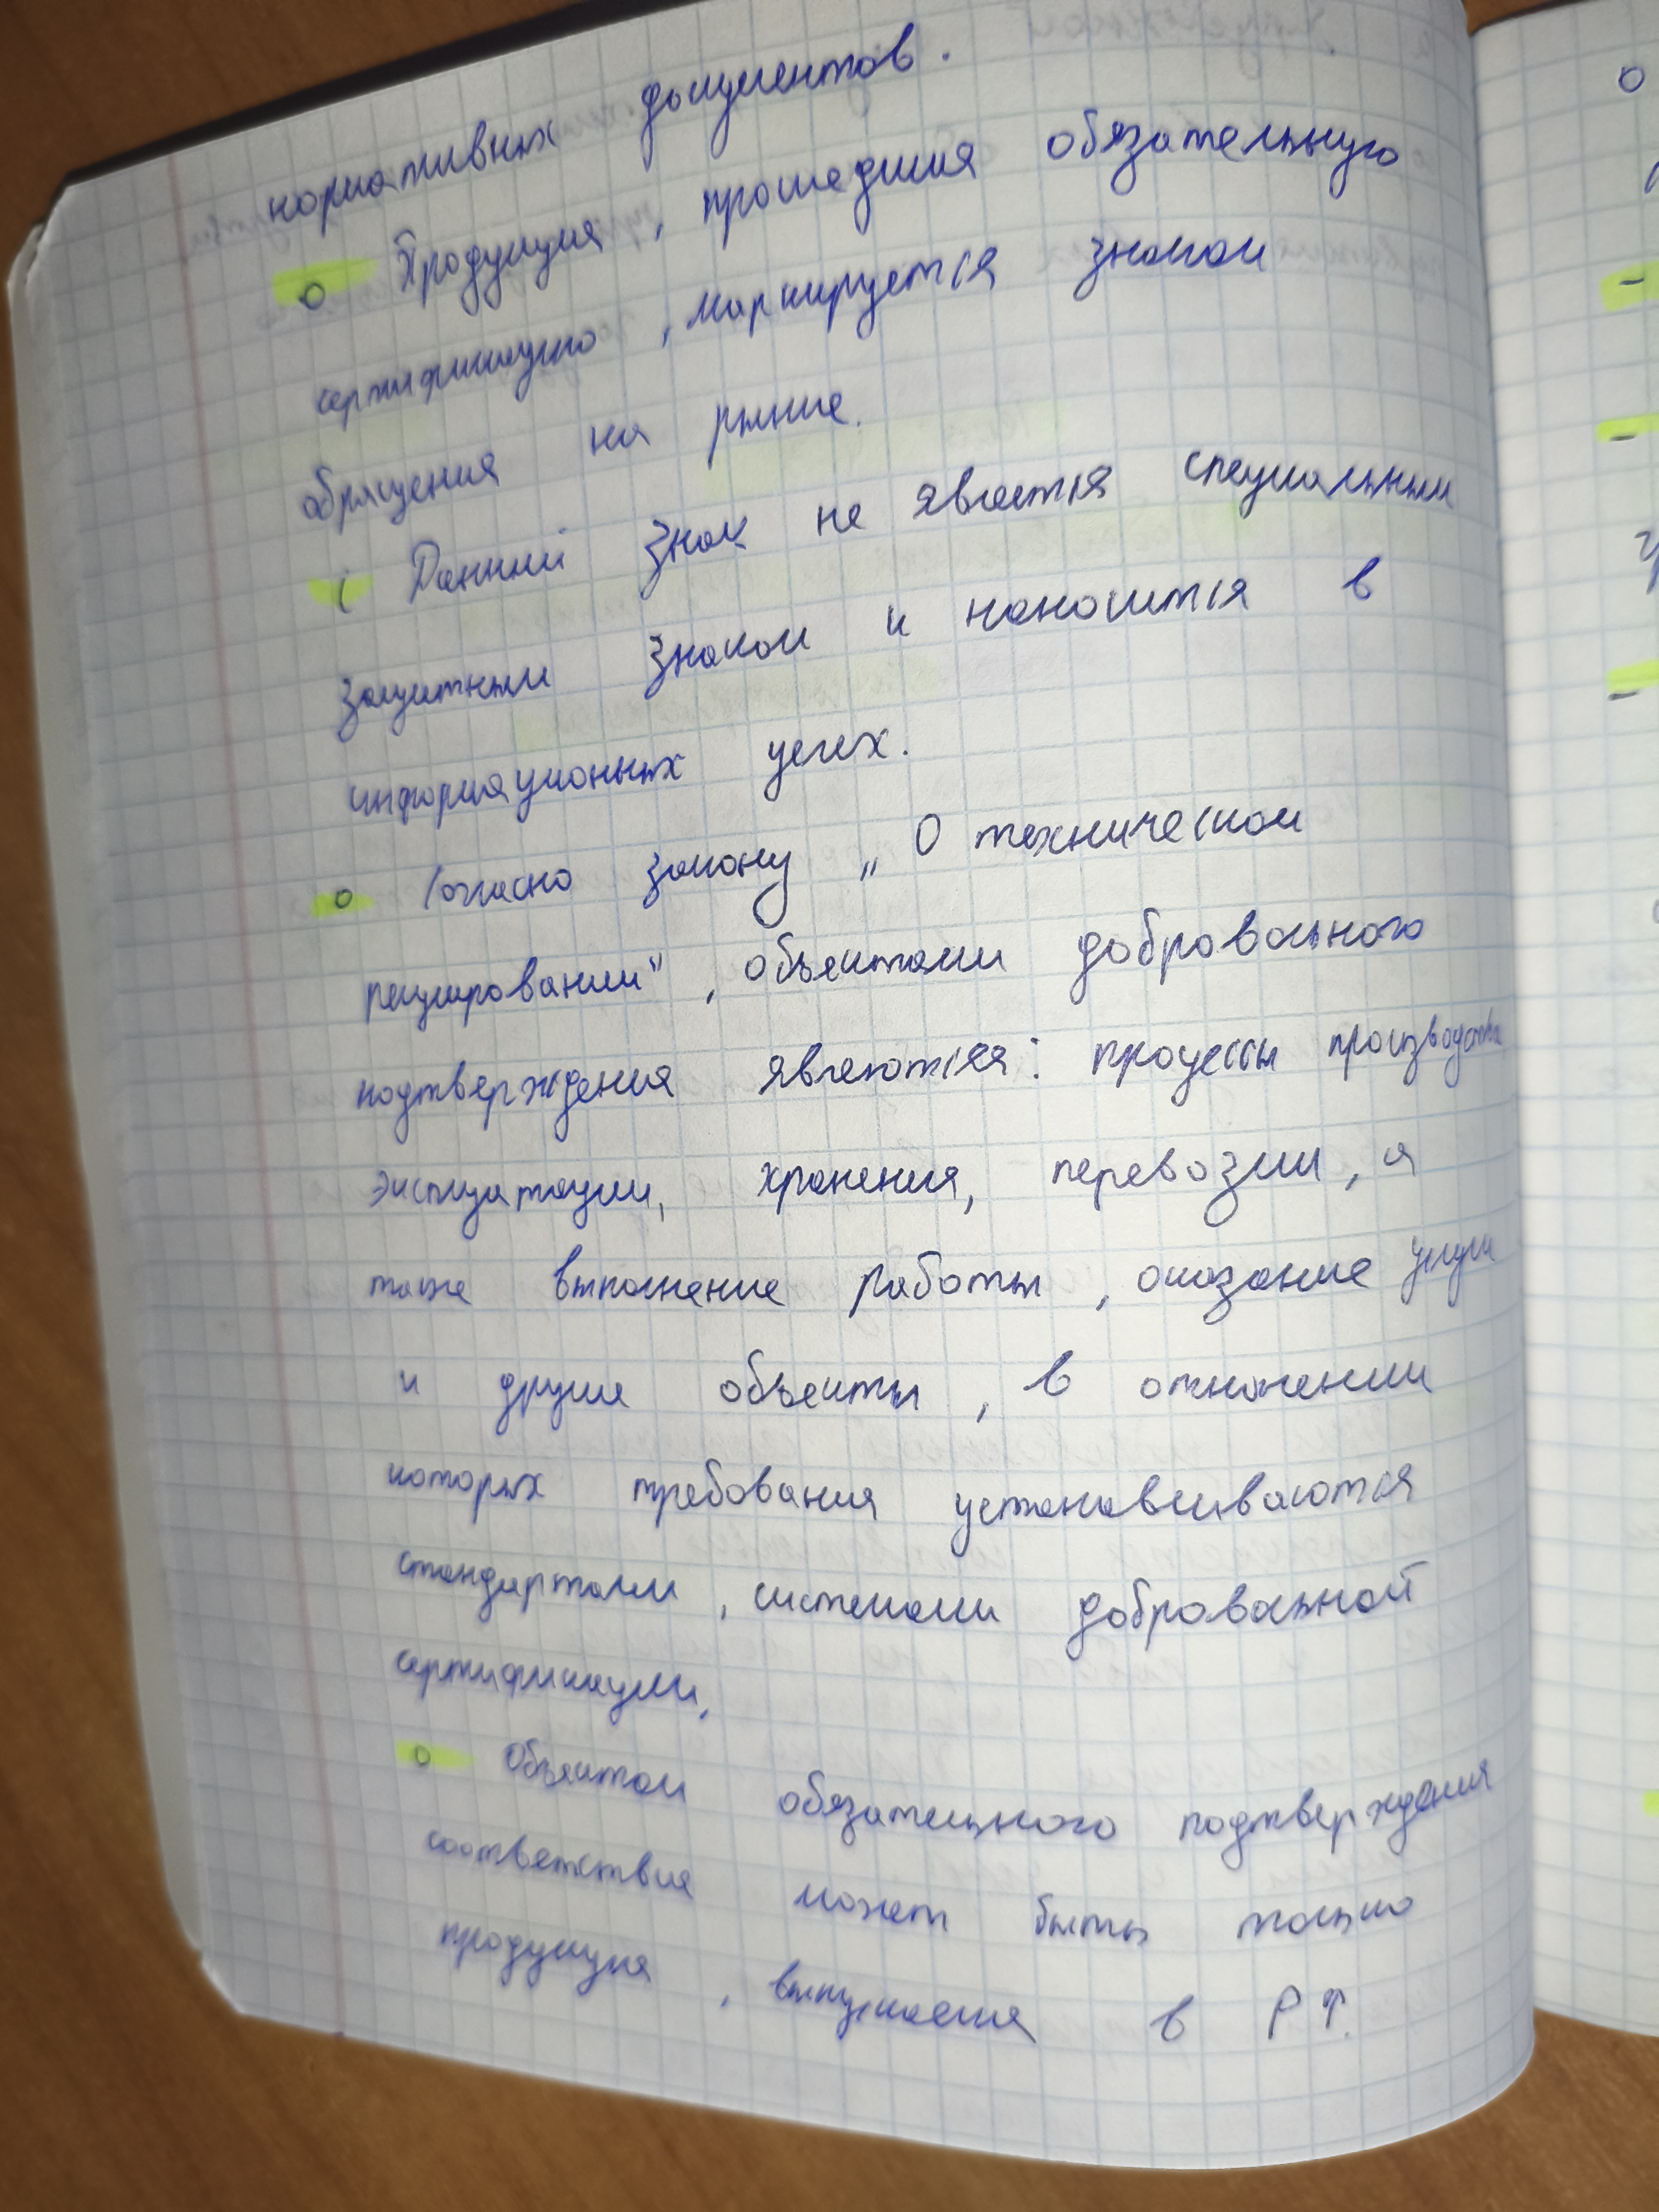 нормативных документов.
о Продукция, прошедшия обязательную
сертификацию, маркируется знаком
обращения на рынке.
i Данный знак не является специальным
защитным знаком и наносится в
информационных целях.
о Согласно закону „О техническом
регулировании", объектами добровольного
подтверждения являются: процессы производства
эксплуатации, хранения, перевозки, а
также выполнение работы, оказание услуг
и другие объекты, в отношении
которых требования устанавливаются
стандартами, системами добровольной
сертификации.
о Объектом обязательного подтверждения
соответствия может быть только
продукция, выпускаемая в РФ.